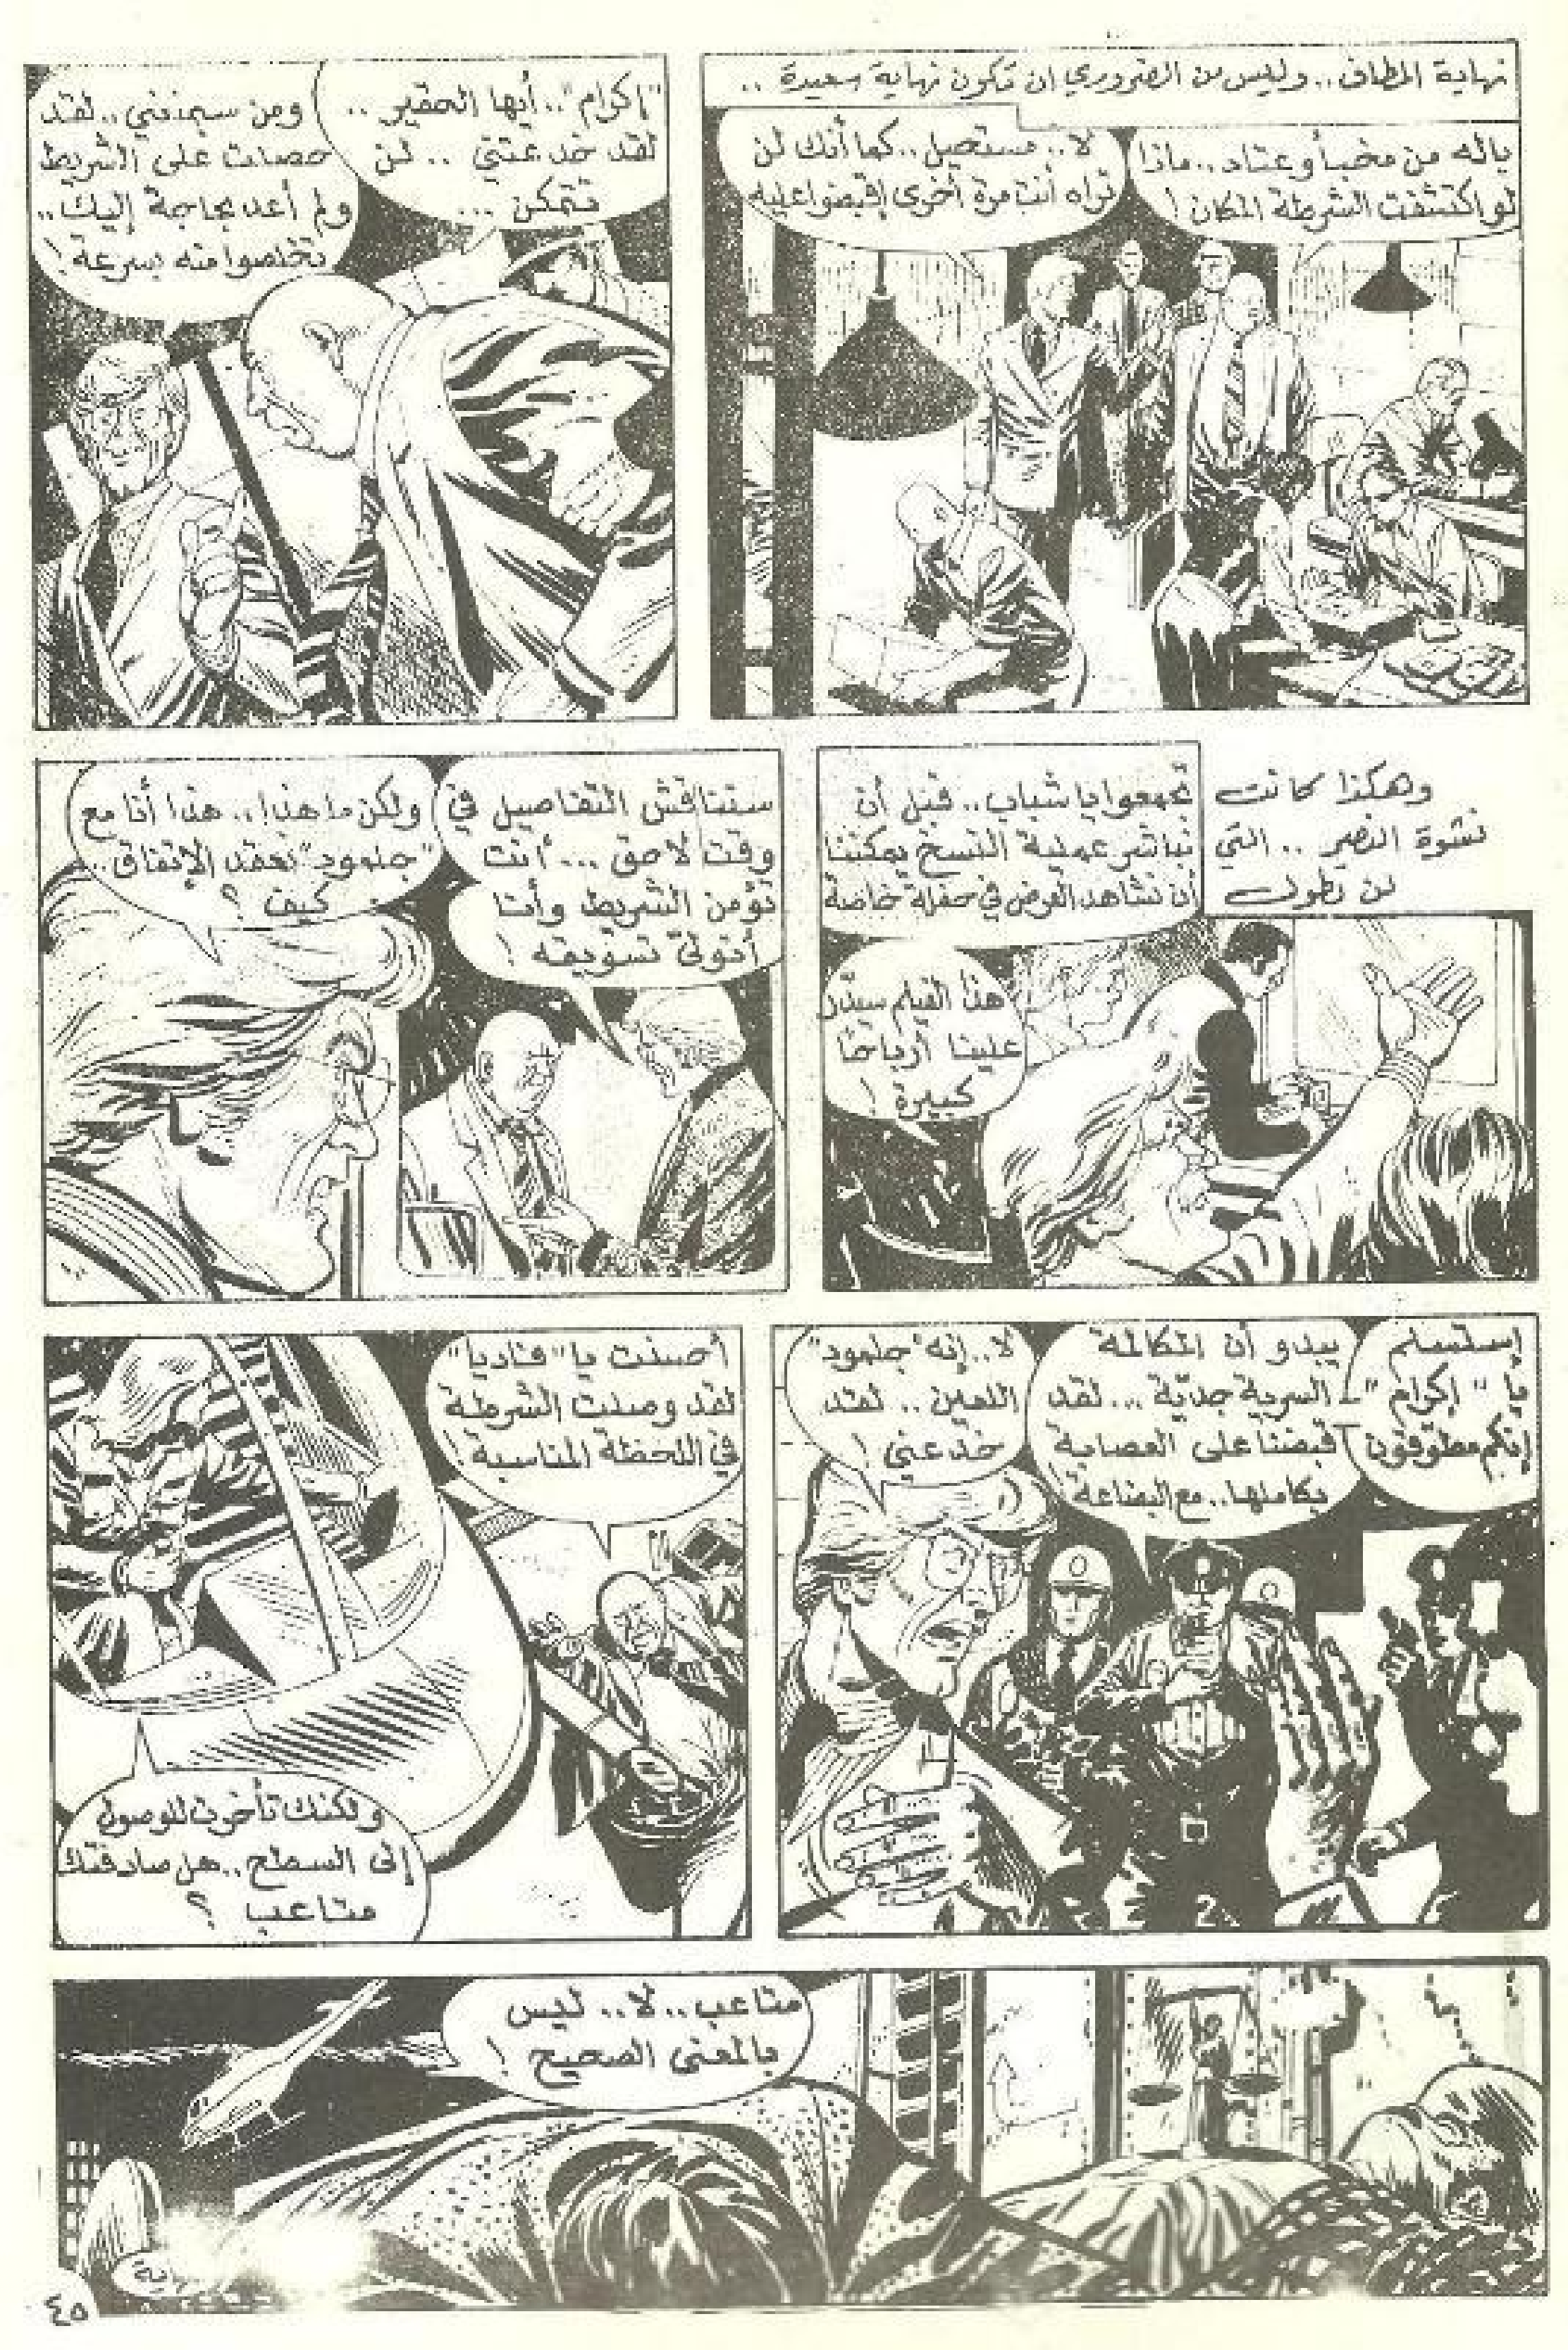 نهاية المطاف.. وليس من الضروري ان تكون نهاية سعيدة..
ياله من مخبأ وعتاد.. ماذا
لو اكتشفت الشرطة المكان!
لا.. مستحيل.. كما أنك لن
تراه أنت مرة أخرى إقبضوا عليه
"إكرام".. أيها الحقير..
لقد خدعتني.. لن
تتمكن...
ومن سيمنعني.. لقد
حصلت على الشريط
ولم أعد بحاجة إليك..
تخلصوا منه بسرعة!
وهكذا كانت
نشوة النصر.. التي
لن تطول
تجمعوا يا شباب.. قبل أن
نباشر عملية النسخ يمكننا
أن نشاهد العرض في حفلة خاصة
هذا الفيلم سيدر
علينا أرباحًا
كبيرة!
سنناقش التفاصيل في
وقت لاحق... أنت
تؤمن الشريط وأنا
أتولى تسويقه!
ولكن ما هذا!.. هذا أنا مع
"جلمود" نعقد الإتفاق..
كيف؟
إستسلم
يا "إكرام"
إنكم مطوقون
يبدو أن المكالمة
السرية جديّة... لقد
قبضنا على العصابة
بكاملها.. مع البضاعة
لا.. إنه "جلمود"
اللعين.. لقد
خدعني!
أحسنت يا "فاديا"
لقد وصلت الشرطة
في اللحظة المناسبة!
ولكنك تأخرت للوصول
إلى السطح.. هل صادفتك
متاعب؟
متاعب.. لا.. ليس
بالمعنى الصحيح!
2
٤٥